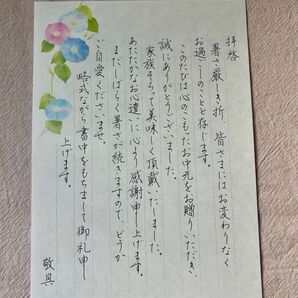 拝啓
暑さ厳しき折、皆さまにはお変わりなく
お過ごしのことと存じます。
このたびは心のこもったお中元をお贈りいただき、
誠にありがとうございました。
家族そろって美味しく頂戴いたしました。
あたたかなお心遣いに心より感謝申し上げます。
まだしばらく暑さが続きますので、どうか
ご自愛くださいませ。
略式ながら書中をもちまして御礼申し
上げます。
敬具